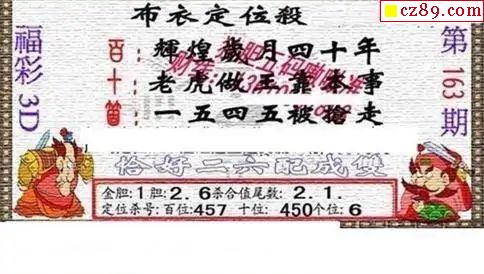 cz89.com
布衣定位殺
福彩3D
第163期
百:輝煌歲月四十年
十:老虎做王靠本事
個:一五四五被搶走
恰好二六配成雙
金胆:1胆:2.6杀合值尾数:2.1.
定位杀号:百位:457 十位:450个位:6